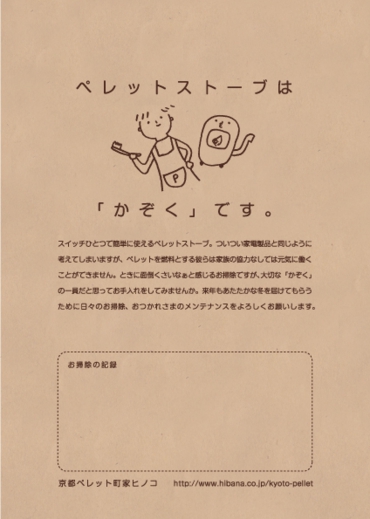 ペレットストーブは
P
「かぞく」です。
スイッチひとつで簡単に使えるペレットストーブ。ついつい家電製品と同じように
考えてしまいますが、ペレットを燃料とする彼らは家族の協力なしでは元気に働く
ことができません。ときに面倒くさいなぁと感じるお掃除ですが、大切な「かぞく」
の一員だと思ってお手入れをしてみませんか。来年もあたたかな冬を届けてもらう
ために日々のお掃除、おつかれさまのメンテナンスをよろしくお願いします。
お掃除の記録
京都ペレット町家ヒノコ http://www.hibana.co.jp/kyoto-pellet